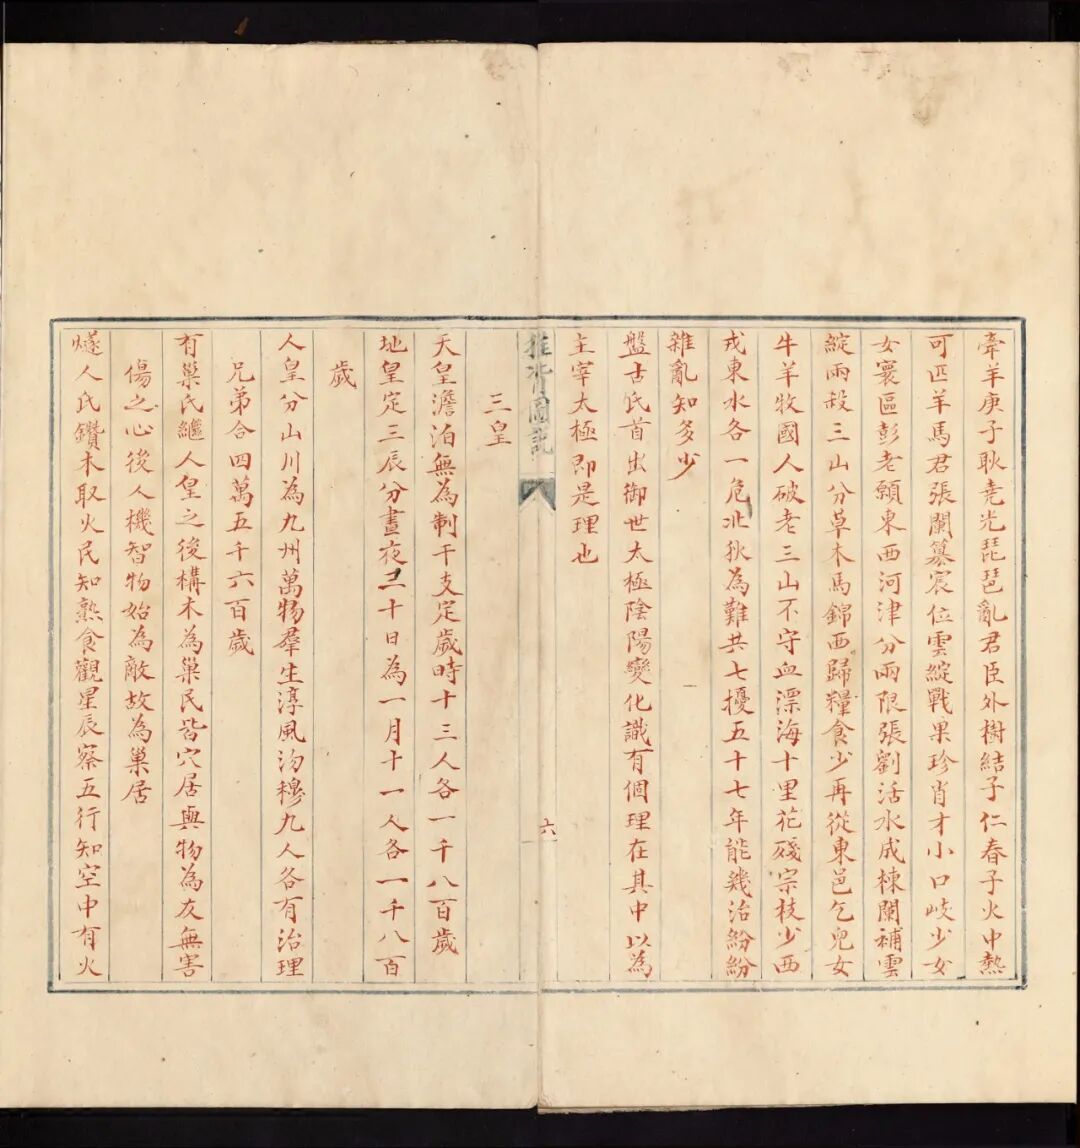 牽羊庚子耿堯光琵琶亂君臣外樹結子仁春子火中熱
可匹羊馬君張闌纂宸位雲綻戰果珍肖才小口岐少女
女寰區彭老顛東西河津分兩限張劉活水成棟闌補雲
綻雨殺三山分草木馬錦西歸糧食少再從東邑乞兒女
牛羊牧國人破老三山不守血漂海十里花殘宗枝少西
戎東水各一危北狄為難共七擾五十七年能幾治紛紛
雜亂知多少
盤古氏首出御世太極陰陽變化識有個理在其中以為
主宰太極即是理也
推背圖說
六
三皇
天皇澹泊無為制干支定歲時十三人各一千八百歲
地皇定三辰分晝夜三十日為一月十一人各一千八百
歲
人皇分山川為九州萬物羣生淳風沕穆九人各有治理
兄弟合四萬五千六百歲
有巢氏繼人皇之後構木為巢民皆穴居與物為友無害
傷之心後人機智物始為敵故為巢居
燧人氏鑽木取火民知熟食觀星辰察五行知空中有火